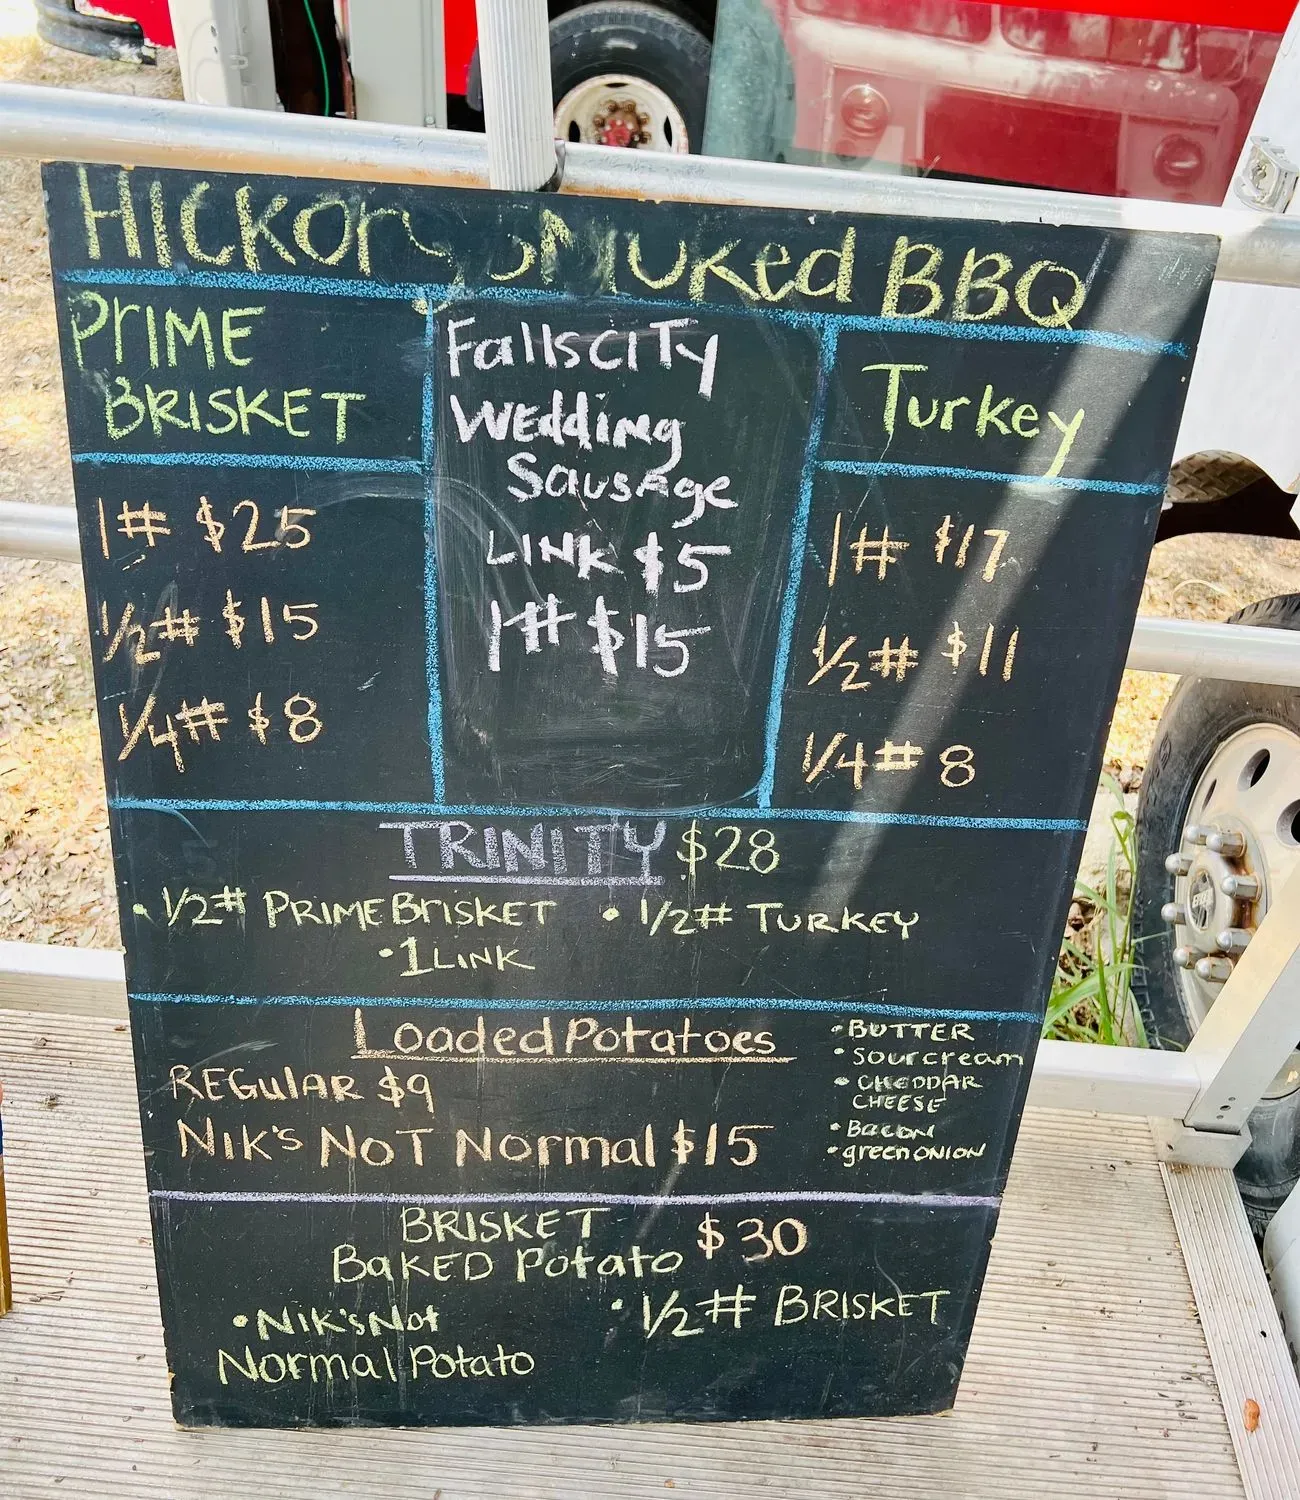 HICKOry SMOKed BBQ
PrIME
BRISKET
1# $25
1/2# $15
1/4# $8
FallsCITy
WEdding
Sausage
LINK $5
1# $15
Turkey
1# $17
1/2# $11
1/4# 8
TRINITY $28
• 1/2# PRIME BrISKET • 1/2# TURKEY
• 1 LINK
Loaded Potatoes
REGulAR $9
NIK'S NOT Normal $15
• BUTTER
• Sour cream
• CHEDDAR
CHEESE
• BACON
• green ONION
BRISKET
BaKED Potato $30
• NIK'S Not
Normal Potato
• 1/2# BRISKET